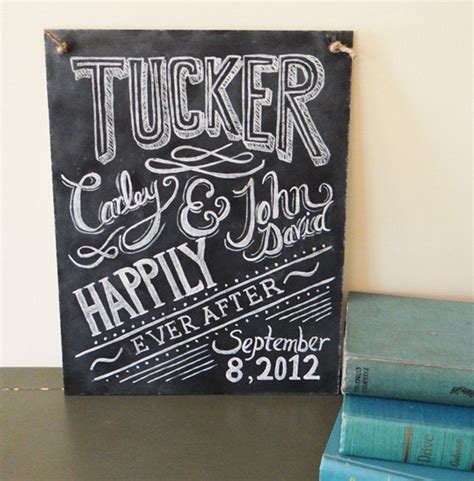 TUCKER
Carley & John David
HAPPILY
EVER AFTER
September
8, 2012
Drive